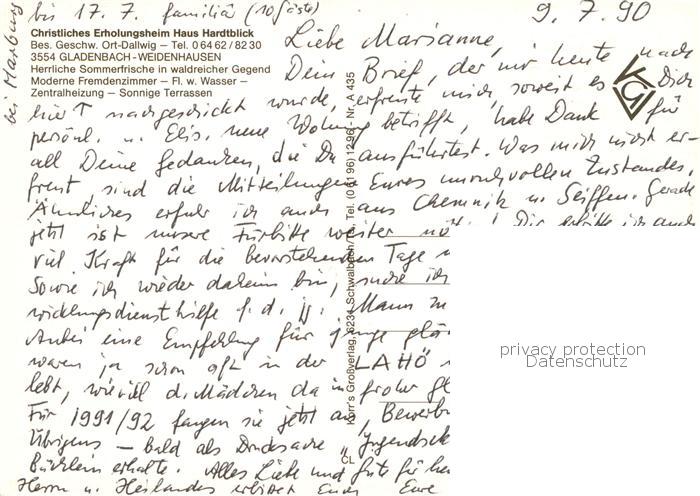 bis 17. 7. familiär (10 Gäste) 9. 7. 90
bei Marburg
Christliches Erholungsheim Haus Hardtblick
Bes. Geschw. Ort-Dallwig – Tel. 0 64 62 / 82 30
3554 GLADENBACH-WEIDENHAUSEN
Herrliche Sommerfrische in waldreicher Gegend
Moderne Fremdenzimmer – Fl. w. Wasser –
Zentralheizung – Sonnige Terrassen
Liebe Marianne,
Dein Brief, der mir heute nach
hier ↑ nachgeschickt wurde, erfreute mich soweit es Dich
persönl. u. Elis. neue Wohnung betrifft, habe Dank für
all Deine Gedanken, die Du ausführtest. Was mich nicht er-
freut sind die Mitteilungen Eures unruhvollen Zustandes.
Ähnliches erfuhr ich auch aus Chemnitz u. Seiffen. Gerade
jetzt ist unsere Fürbitte weiter Dir erbitte ich auch
viel Kraft für die bevorstehenden Tage
Sowie ich wieder daheim bin, suche ich
wicklungsdiensthilfe f. d. jg. Mann
Anbei eine Empfehlung für junge
waren ja schon oft in der LAHÖ
lebt, wieviel d. Mädchen da in froher
Für 1991/92 fangen sie jetzt an, Bewerb
Übrigens – bald als Drucksache "Jugend
Büchlein erhalte. Alles Liebe und Gute für
Herrn u. Heilandes erbittet Euch Eure
Karr's Großverlag, 6231 Schwalbach/Ts., Tel. (0 61 96) 12 96 - Nr. A 435
CL
privacy protection
Datenschutz